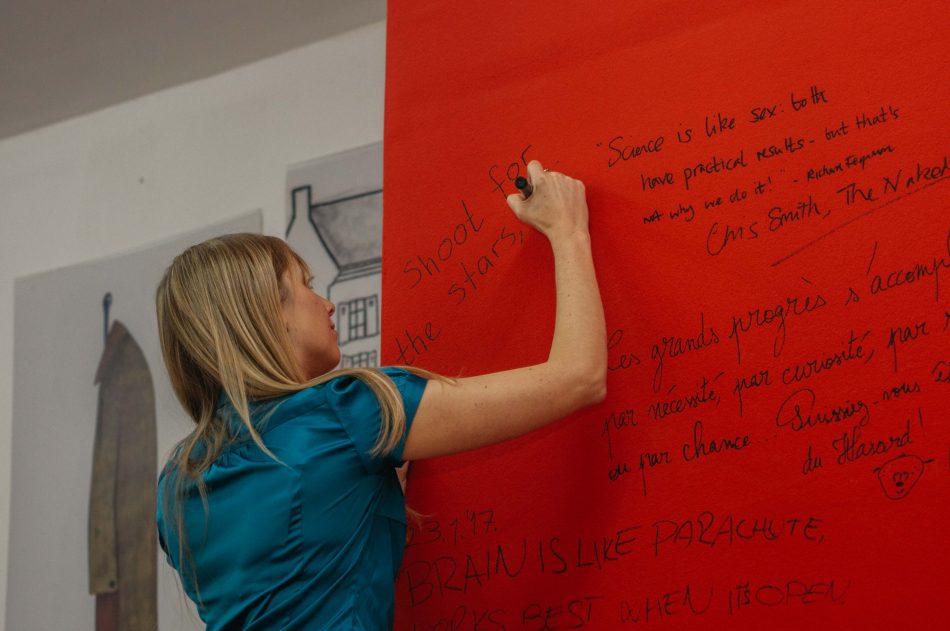 shoot for
stars,
the
"Science is like sex: both
have practical results - but that's
not why we do it!" - Richard Ferguson
Chris Smith, The Naked
Les grands progrès s'accompl
par nécessité, par curiosité, par
ou par chance... Puissiez-vous
du Hasard!
23.1.'17.
BRAIN IS LIKE PARACHUTE,
WORKS BEST WHEN IT'S OPEN